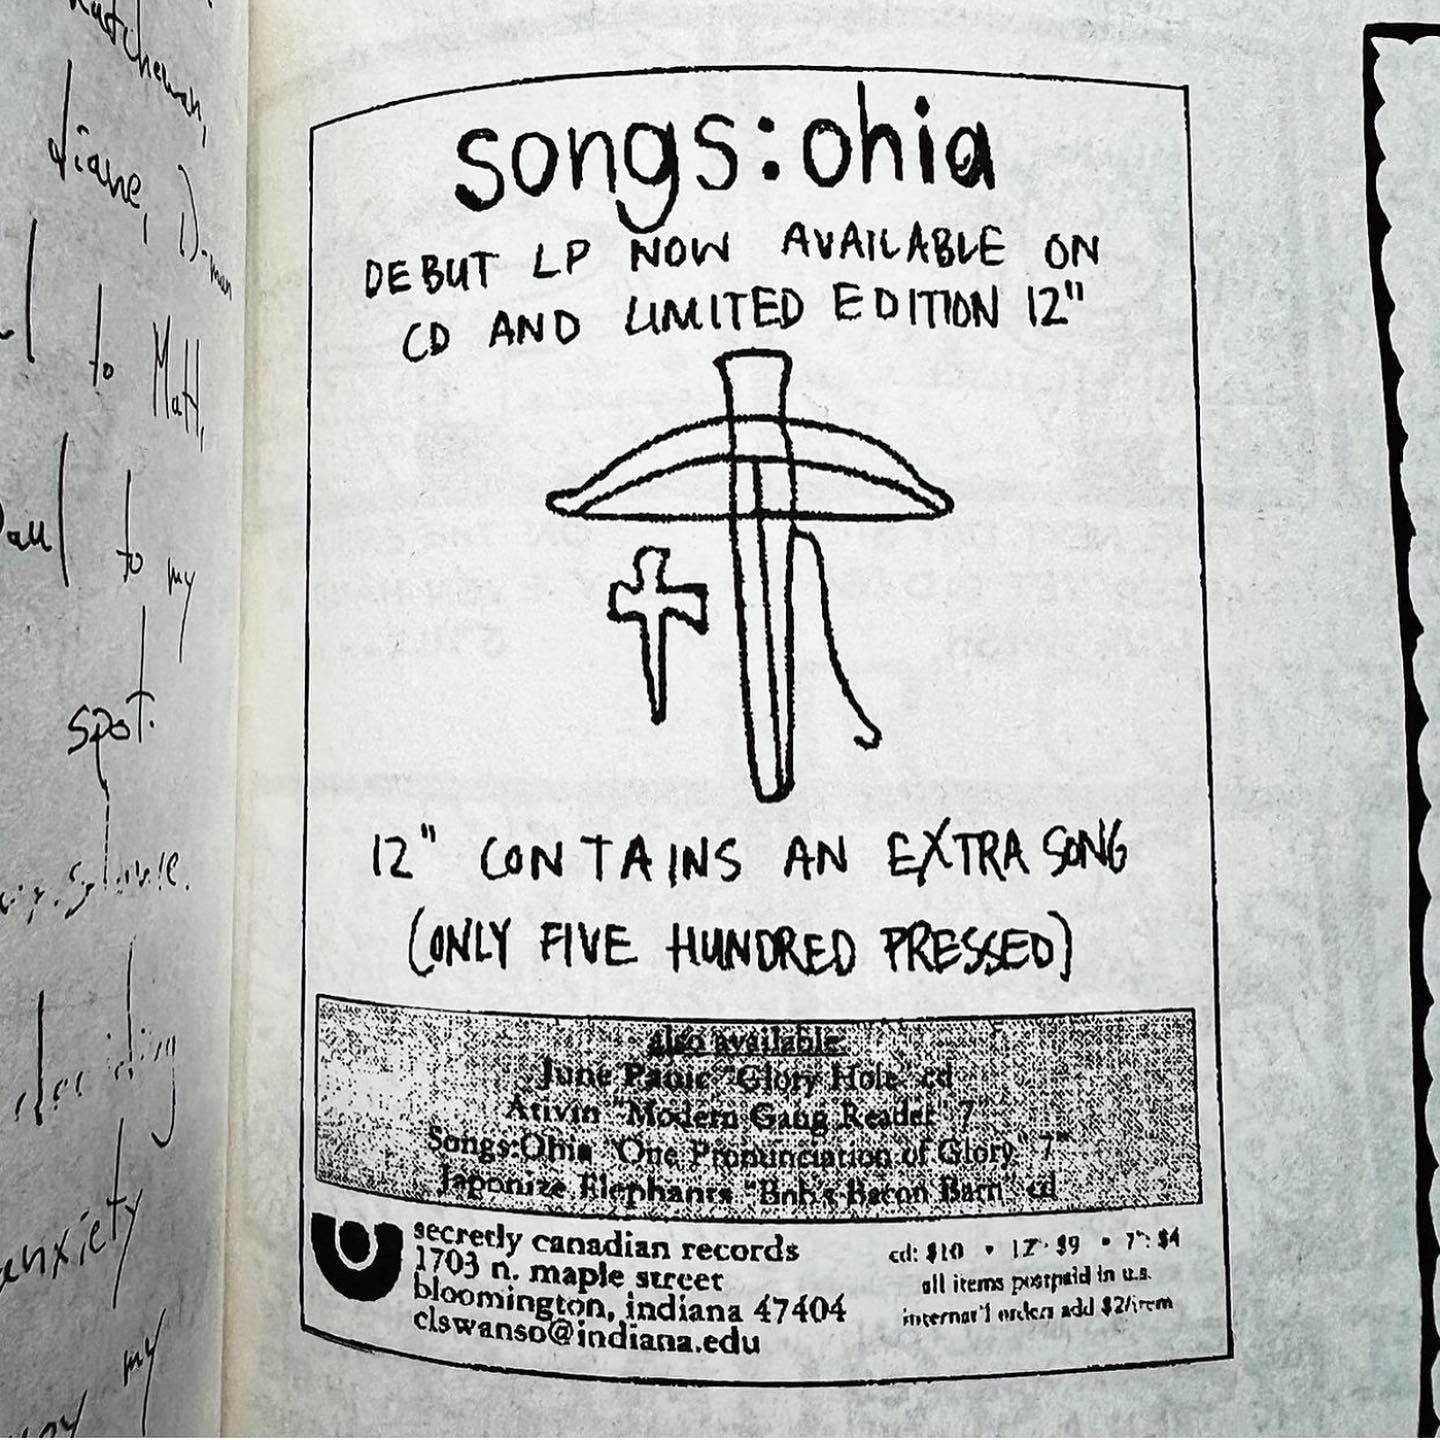 diane,
to Matt,
to my
spot.
anxiety
my
songs:ohia
DEBUT LP NOW AVAILABLE ON
CD AND LIMITED EDITION 12"
12" CONTAINS AN EXTRA SONG
(ONLY FIVE HUNDRED PRESSED)
also available:
June Panic "Glory Hole" cd
Ativin "Modern Gang Reader" 7"
Songs:Ohia "One Pronunciation of Glory" 7"
Japonize Elephants "Bob's Bacon Barn" cd
secretly canadian records
1703 n. maple street
bloomington, indiana 47404
clswanso@indiana.edu
cd: $10 • 12": $9 • 7": $4
all items postpaid in u.s.
internat'l orders add $2/item